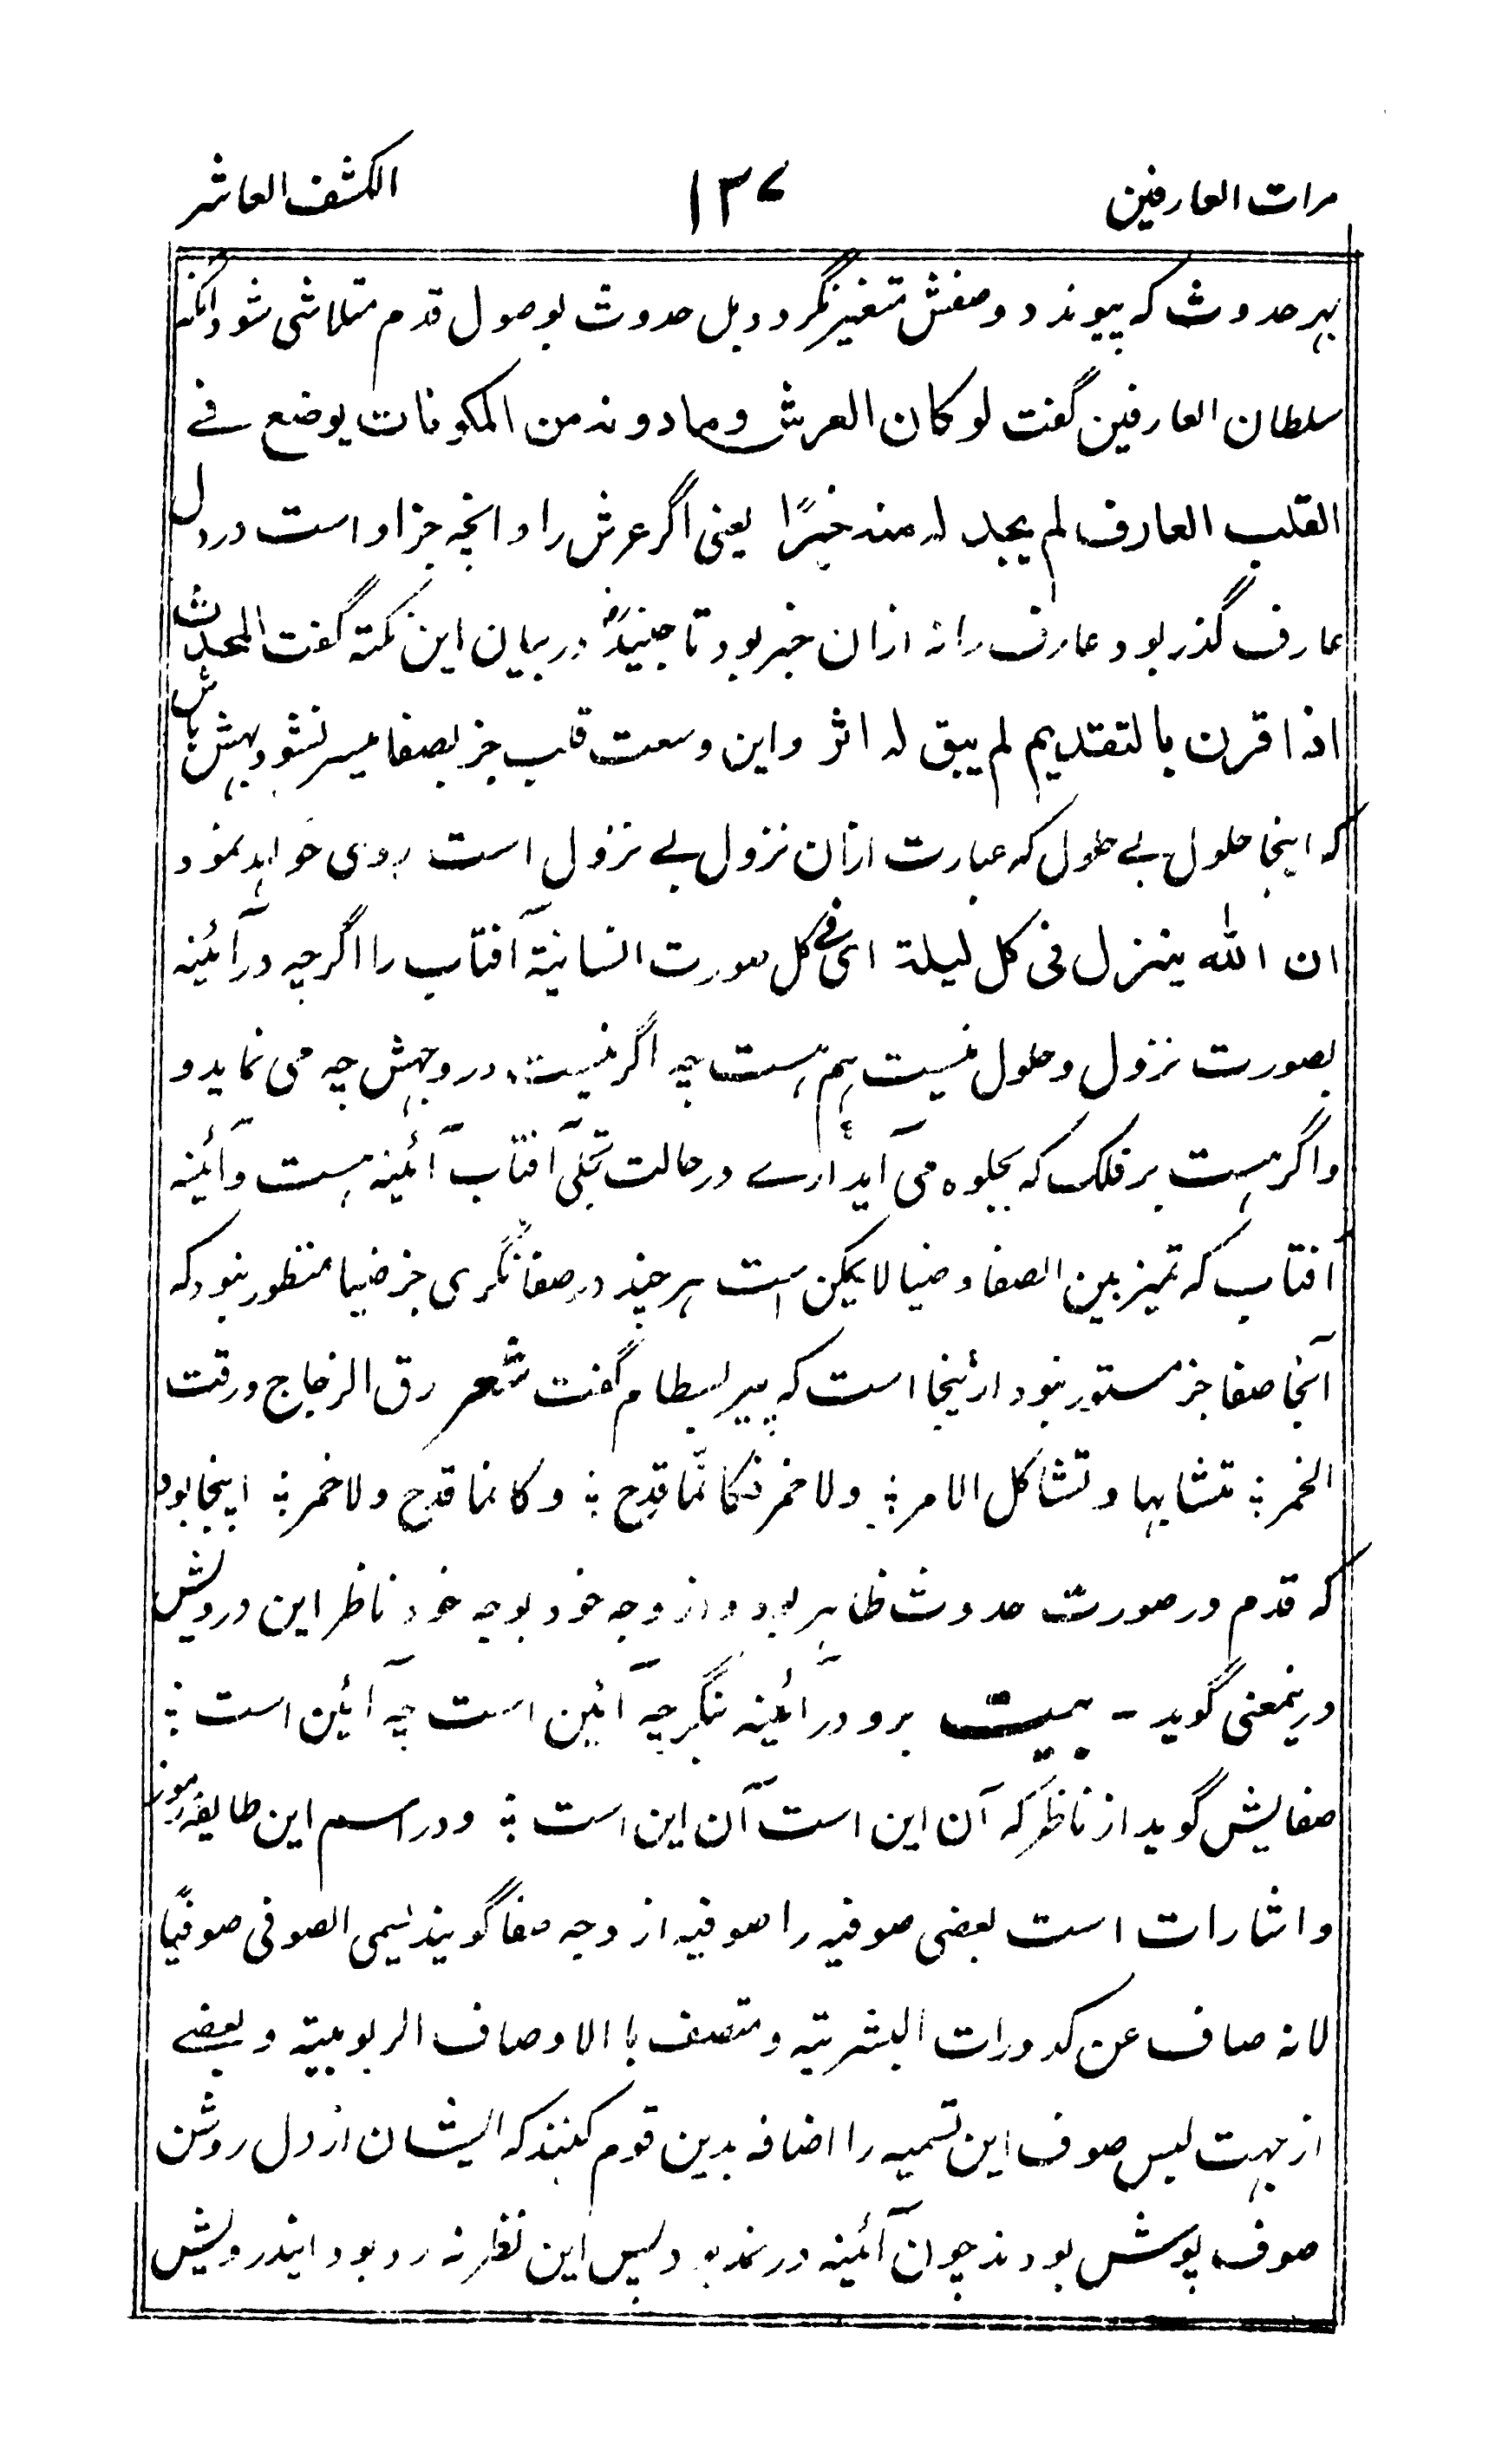 مرات العارفین ۱۳۷ الکشف العاشر
بہر حدوث کہ پیوندد وصفش متغیر نگردد بل حدوث بوصول قدم متلاشی شود آنکہ
سلطان العارفین گفت لو کان العرش وما دونہ من المکونات یوضع فے
القلب العارف لم یجد لہ منہ خبرًا یعنی اگر عرش را و انچہ جز او است در دل
عارف گذر بود عارف را نہ ازان خبر بود تا جنیدؓ در بیان این نکتہ گفت المحدث
اذا قرن بالتقدیم لم یبق لہ اثر و این وسعت قلب جز بصفا میسر نشود بہش باش
کہ اینجا حلول بے حلول کہ عبارت ازان نزول بے نزول است روی خواہد نمود
ان اللہ ینزل فی کل لیلۃ ای فے کل صورت انسانیۃ آفتاب را اگرچہ در آئینہ
بصورت نزول و حلول نیست ہم ہست چہ اگر نیست در وجہش چہ می نماید و
و اگر ہست بر فلک کہ بجلوہ می آید آرے در حالت تجلی آفتاب آئینہ ہست و آئینہ
آفتاب کہ تمیز بین الصفا و ضیا لا یمکن است ہر چند در صفا نگری جز ضیا منظور نبود کہ
آنجا صفا جز مستور نبود ازینجا است کہ پیر بسطام گفت شعر رق الزجاج ورقت
الخمر ؛ تتشابہا وتشاکل الامر ؛ ولا خمر فکانما قدح ؛ و کانما قدح ولا خمر ؛ اینجا بود
کہ قدم در صورت حدوث ظاہر بود و از وجہ خود بوجہ خود ناظر این درویش
درینمعنی گوید - بیت برو در آئینہ بنگر چہ آئین است چہ آئین است ؛
صفایش گوید از ناظر کہ آن این است آن این است ؛ و در اسم این طایفہ رموز
و اشارات است بعضی صوفیہ را صوفیہ از وجہ صفا گویند یسمی الصوفی صوفیًا
لانہ صاف عن کدورات البشریتہ و متصف با الاوصاف الربوبیتہ و بعضے
از جہت لبس صوف این تسمیہ را اضافہ بدین قوم کنند کہ ایشان از دل روشن
صوف پوش بودند چون آئینہ در نمد بود پس این نظر نہ رد بود ایندرویش